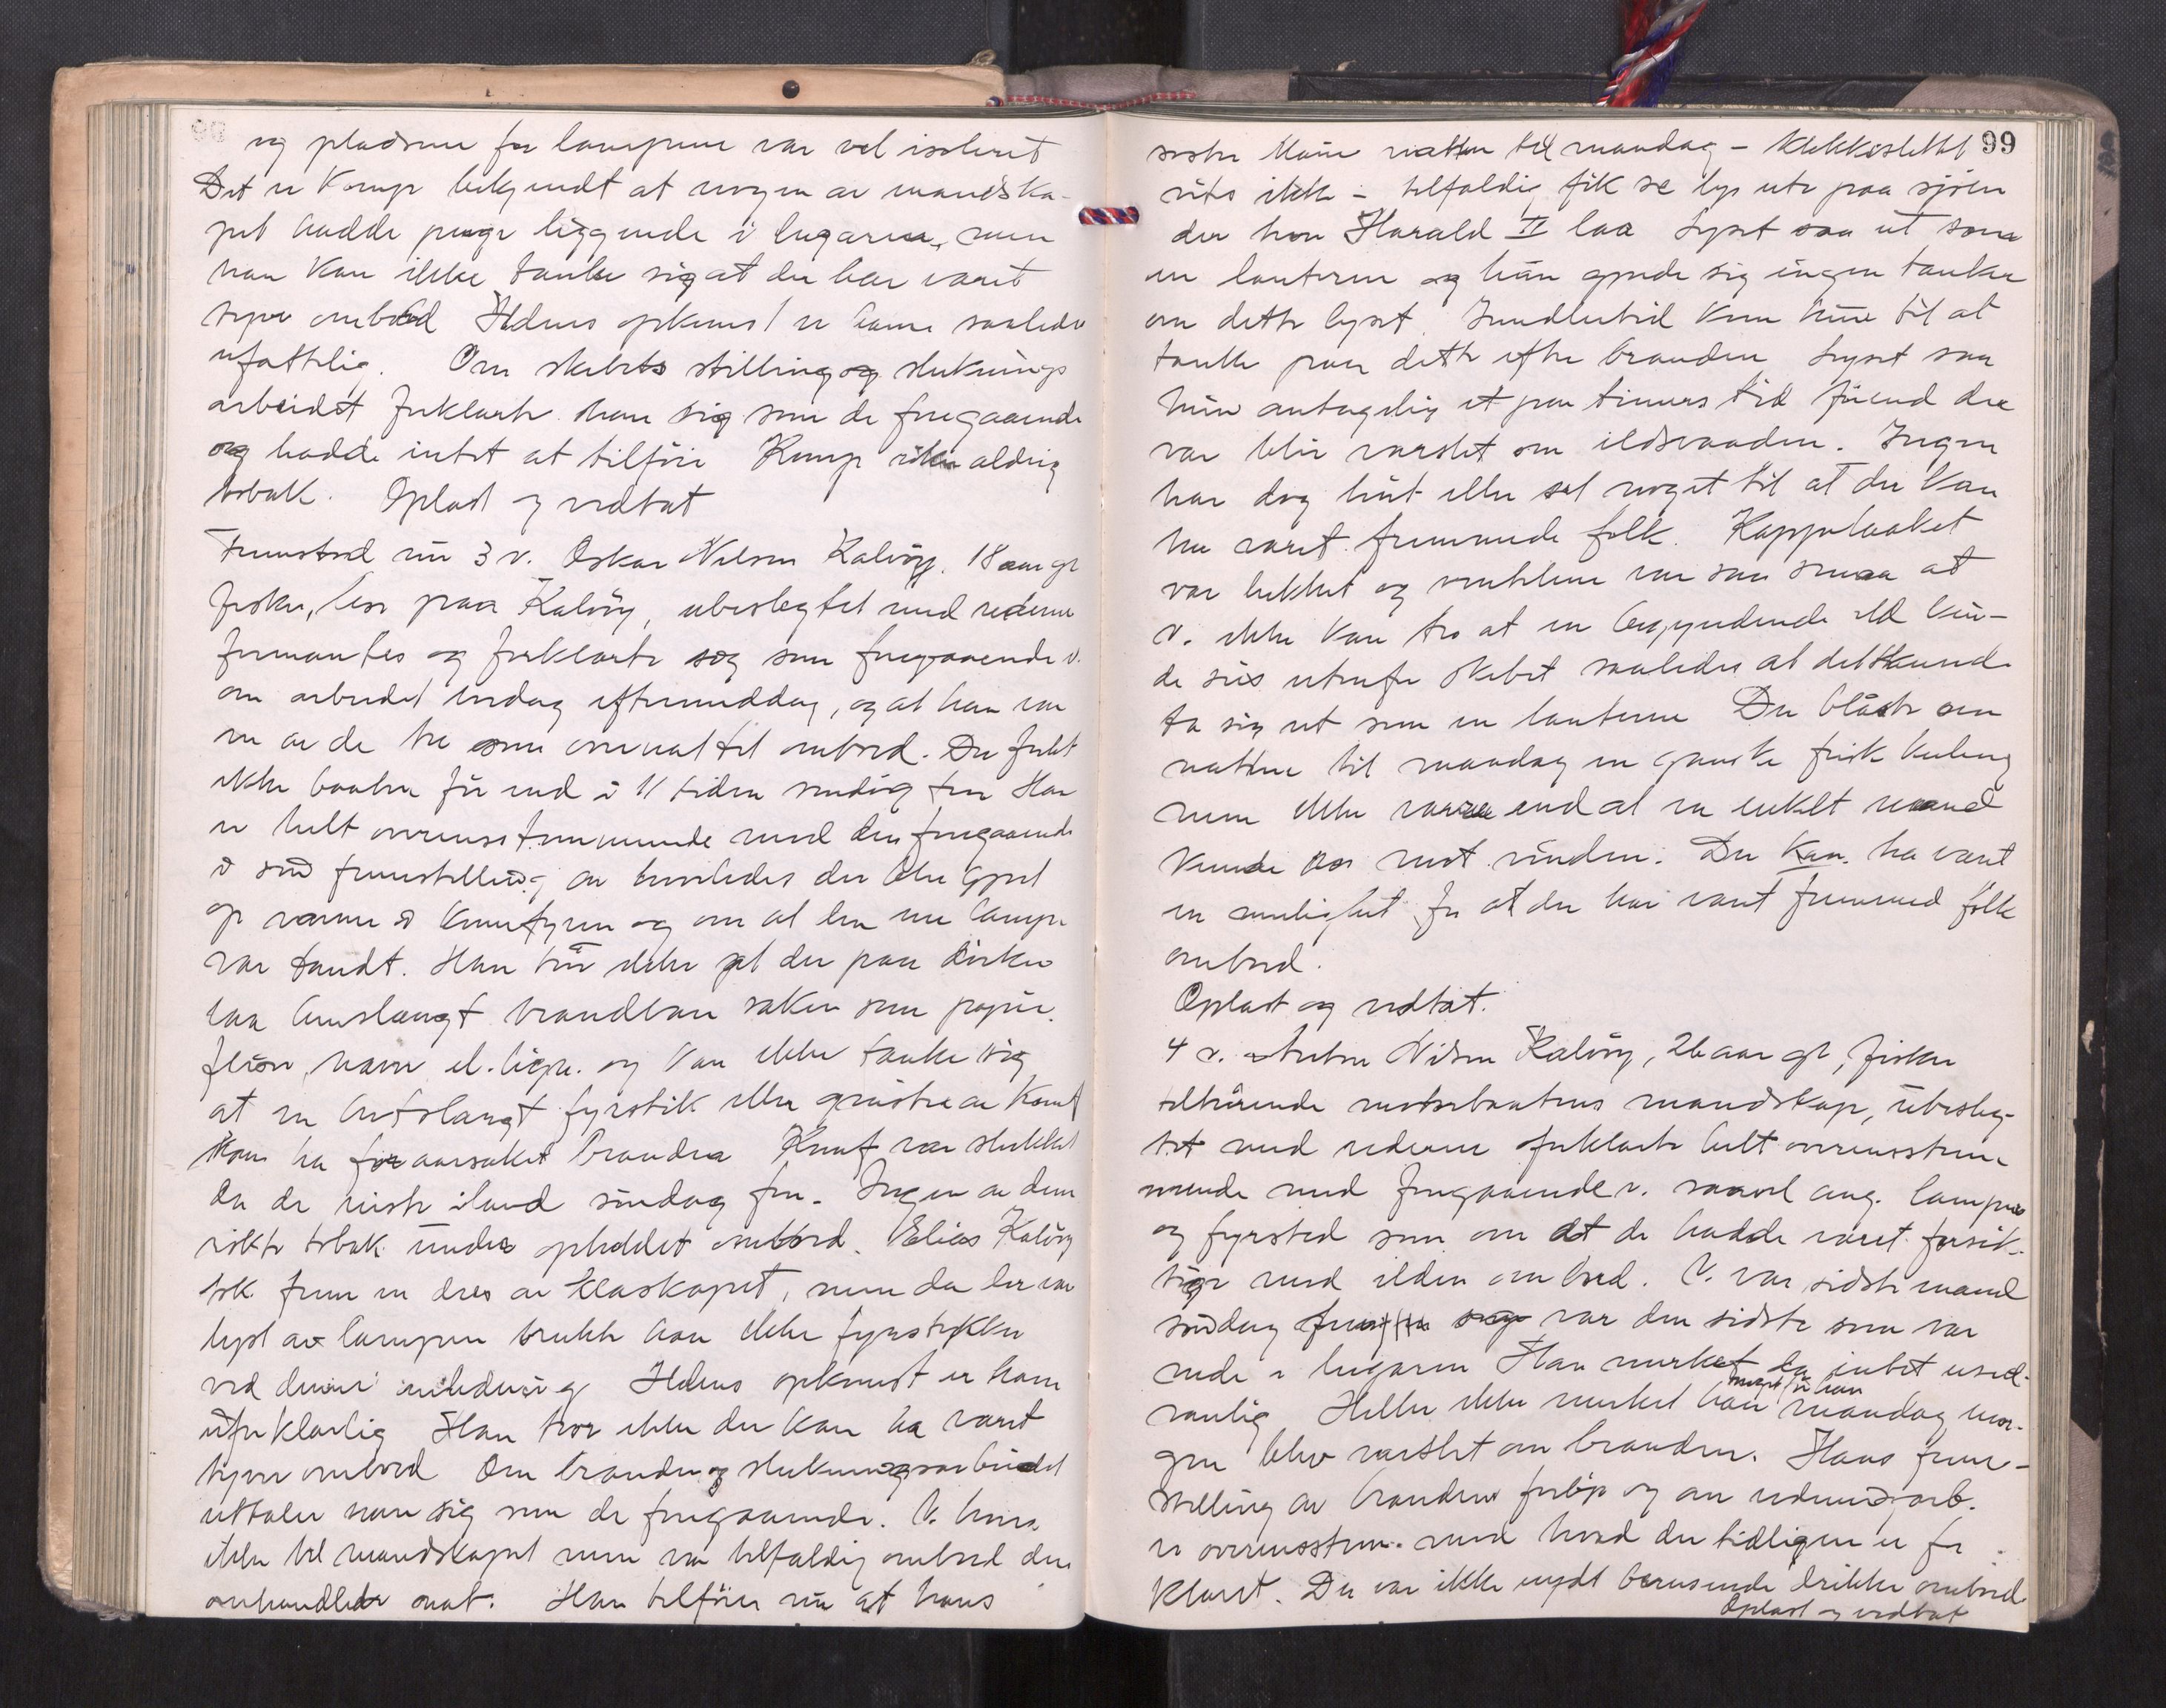 og pladsene for lampene var vel isoleret
Det er Komp bekjendt at nogen av mandska-
pet hadde penge liggende i lugaren, men
han kan ikke tænke sig at der har været
tyve ombord Ildens opkomst er ham saaledes
ufattelig. Om skibets stilling og sluknings
arbeidet forklarte han sig som de foregaaende
og hadde intet at tilføie Komp røker aldrig
tobak. Oplæst og vedtat
Fremstod nu 3 v. Oskar Nilsen Kalvøy, 18 aar gl
fisker, bor paa Kalvøy, ubeslegtet med rederne
formantes og forklarte sig som foregaaende v.
om arbeidet lørdag eftermiddag, og at han var
en av de tre som overnattet ombord. De forlot
ikke baaten før end i 11 tiden søndag fm Han
er helt overensstemmende med den foregaaende
v sin fremstilling av hvorledes der blev gjort
op varme i kamfyren og om at kun en lampe
var tændt. Han tror ikke at der paa dørken
laa henslængt brandbare saker som papir,
fliser, høvre el. lign. og kan ikke tænke sig
at en bortslængt fyrstik eller gnister av komf
kan ha foraarsaket branden Komf var slukket
da de reiste iland søndag fm. Ingen av dem
røkte tobak under opholdet ombord. Elias Kalvøy
tok frem en dres av klæskapet, men da der var
lyst av lampen brukte han ikke fyrstykker
ved denne anledning Ildens opkomst er ham
uforklarlig Han tror ikke der kan ha været
tyver ombord Om branden og slukningsarbeidet
uttaler han sig som de foregaaende. V. hører
ikke til mandskapet men var tilfældig ombord den
omhandlede nat. Han tilføier nu at hans
99
søster Marie natten til mandag – klokkeslettet
vites ikke – tilfældig fik se lys ute paa sjøen
der hvor Harald II laa Lyset saa ut som
en lanterne og hun gjorde sig ingen tanker
om dette lyset. Imidlertid kom hun til at
tænke paa dette efter branden Lyset saa
hun antagelig et par timers tid førend der
var blit varslet om ildsvaaden. Ingen
har dog hørt eller set noget til at der kan
ha været fremmede folk. Kappelaaket
var lukket og ventilene var saa smaa at
v. ikke kan tro at en begyndende ild kun-
de sees utenfor skibet saaledes at det kunde
ta sig ut som en lanterne Der blåste om
natten til mandag en ganske frisk kuling
men ikke værre end at en enkelt mand
kunde ro mot vinden. Der kan ha været
en mulighet for at der har været fremmed folk
ombord.
Oplæst og vedtat.
4 v. Anton Nilsen Kalvøy, 26 aar gl, fisker
tilhørende motorbaatens mandskap, ubesleg-
tet med rederne forklarte helt overensstem-
mende med foregaaende v. saavel ang. lampen
og fyrsted som om at de hadde været forsik-
tige med ilden ombord. V. var sidste mand
søndag og var den sidste som var
nede i lugaren Han merket da intet used-
vanlig Heller ikke merket han noget før han mandag mor-
gen blev varslet om branden. Hans frem-
stilling av brandens forløp og om redningsarb.
er overensstem. med hvad der tidligere er for
klaret. Der var ikke nydt berusende drikke ombord
Oplæst og vedtat